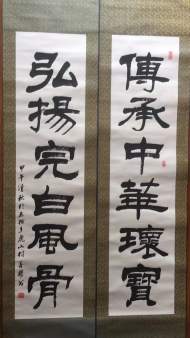 傳承中華瓌寶
弘揚完白風骨
甲午清秋